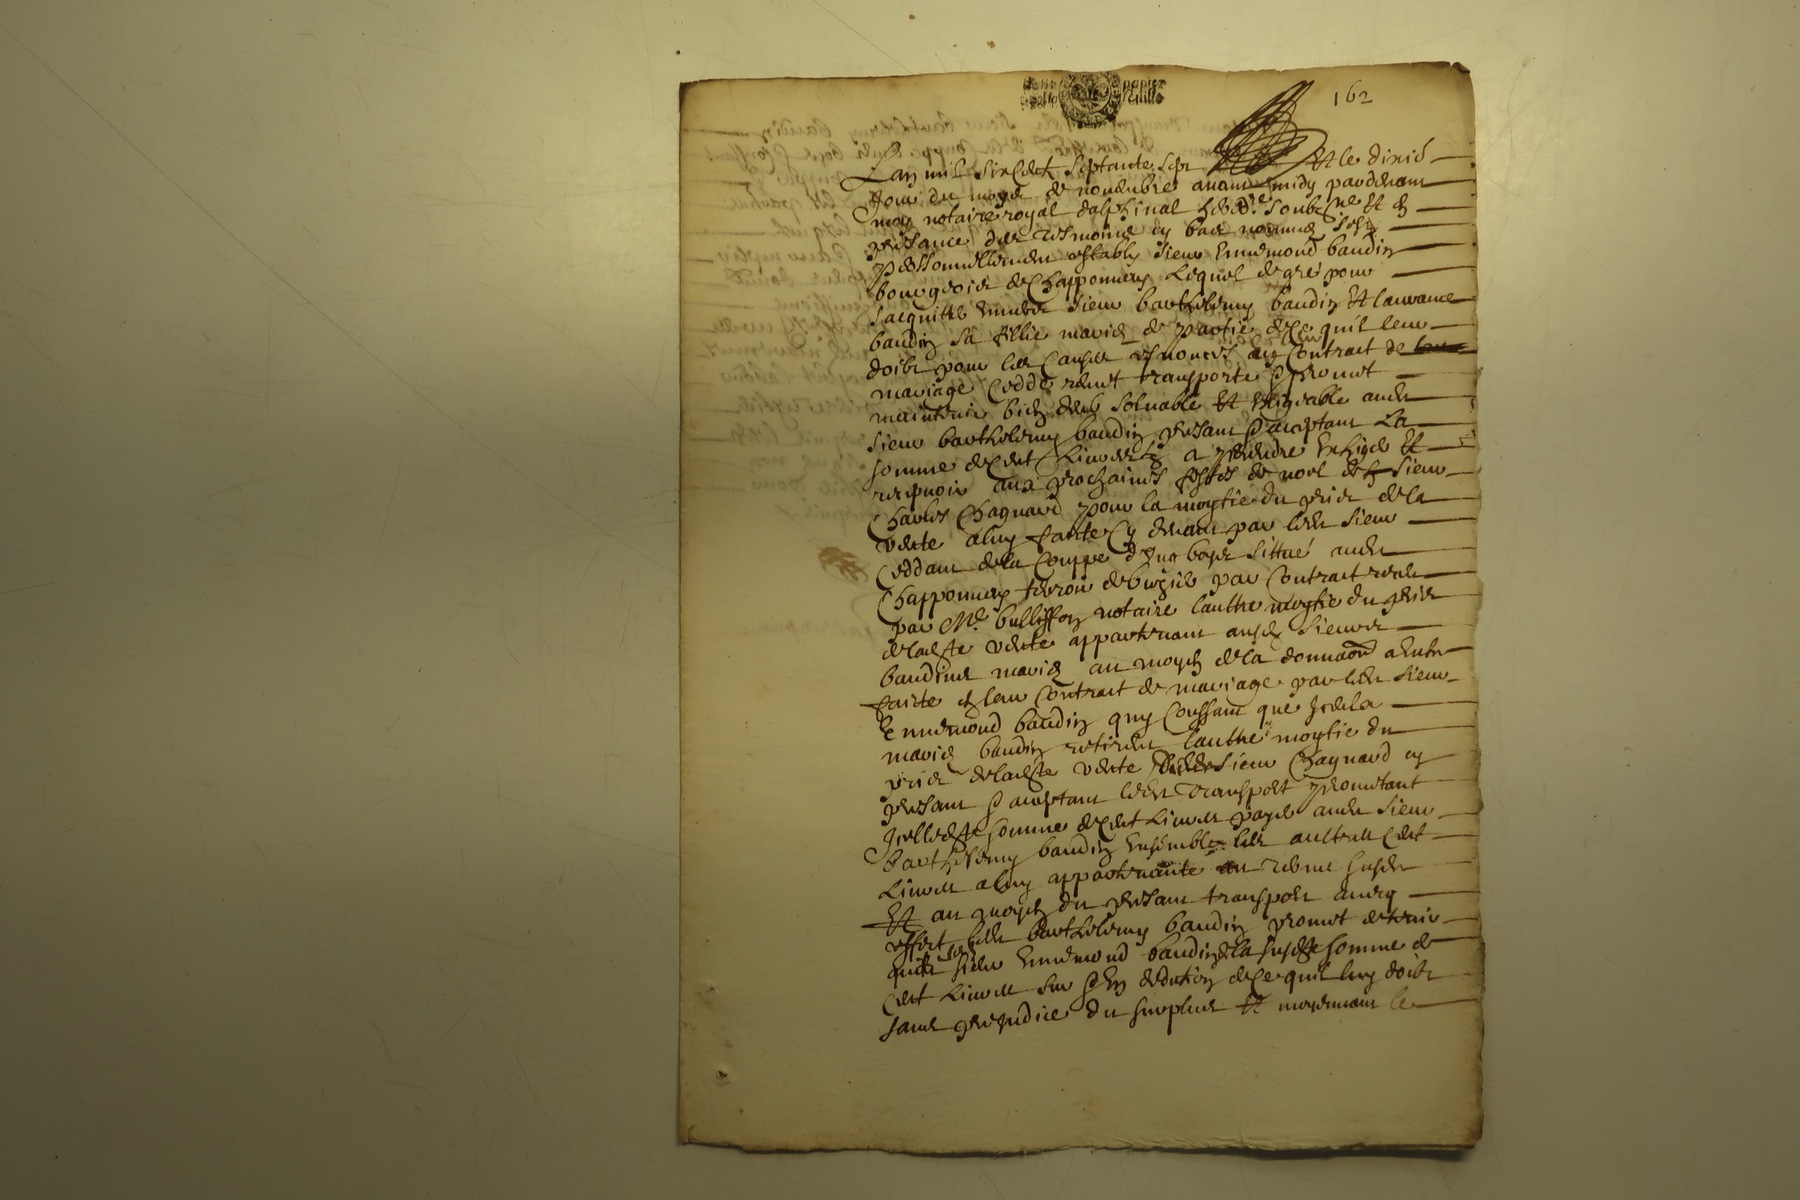 162
Lan mil six cent septante sept Et le dixie
Jour du moys de novembre avant midy pardevant
moy notaire royal dalphinal soubzne et en
presance des tesmoins cy bas nommes
personnellement estably sieur Ennemond baudin
bourgeois de Chapponnay Lequel de gré pour
sacquitté envers sieur barthelemy baudin Et laurance
baudin sa fillie mariés de partie de ce quil leur
doibt pour les causes esnoncés au contrat de
mariage cedde remet transporte promet
maintenir bien deub solvable Et exigeable audit
sieur barthelemy baudin presant acceptant La
somme de cent Livres a prendre Exhiger Et
recepvoir aux prochaines festes de noel de sieur
Charles Chagnard pour la moytie du prix de la
vente a luy faicte cy devant par ledit sieur
ceddant de la Couppe d'ung boys sittué audit
Chapponnay terroir de par contract receu
par Me notaire lautre moytie du prix
de ladite vente appartenant ausd sieurs
baudins mariés au moyen de la donnaon a Eux
faicte en leur contract de mariage par ledit sieur
Ennemond baudin quy consant que
mariés baudin retirent lautre moytie du
prix de ladite vente sieur Chagnard cy
presant acceptant ledit transport promettant
somme de cent Livres payer audit sieur
barthelemy baudin Ensemble les aultres cent
Livres a luy appartenante au terme susdit
Et au moyen du presant transport
effect ledit barthelemy baudin promet de tenir
quitte sieur Ennemond baudin de la susdite somme de
cent Livres sur Et en deduction de ce quil luy doibt
sans prejudice du surplus Et moyennant le